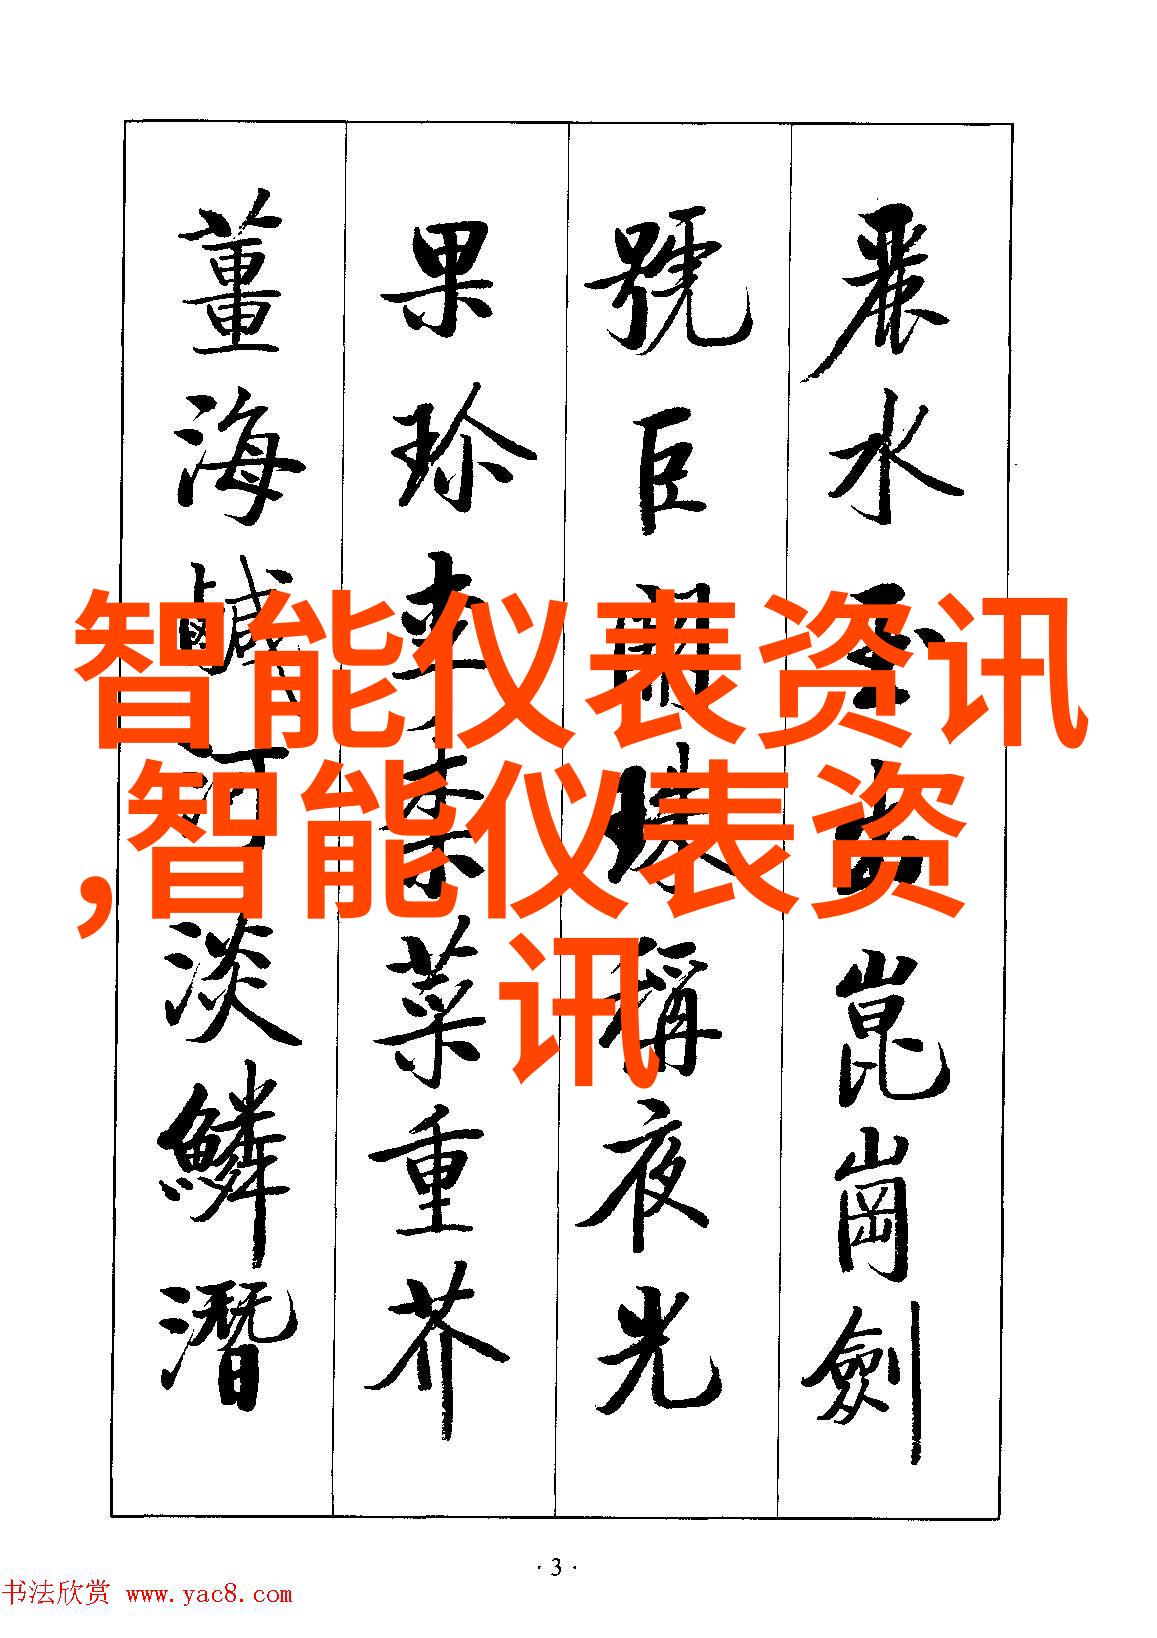 麗水玉出崑崗劍
號巨闕珠稱夜光
果珍李柰菜重芥
薑海鹹河淡鱗潛
智能仪表资讯
,智能仪表资
讯
·3·
书法欣赏 www.yac8.com